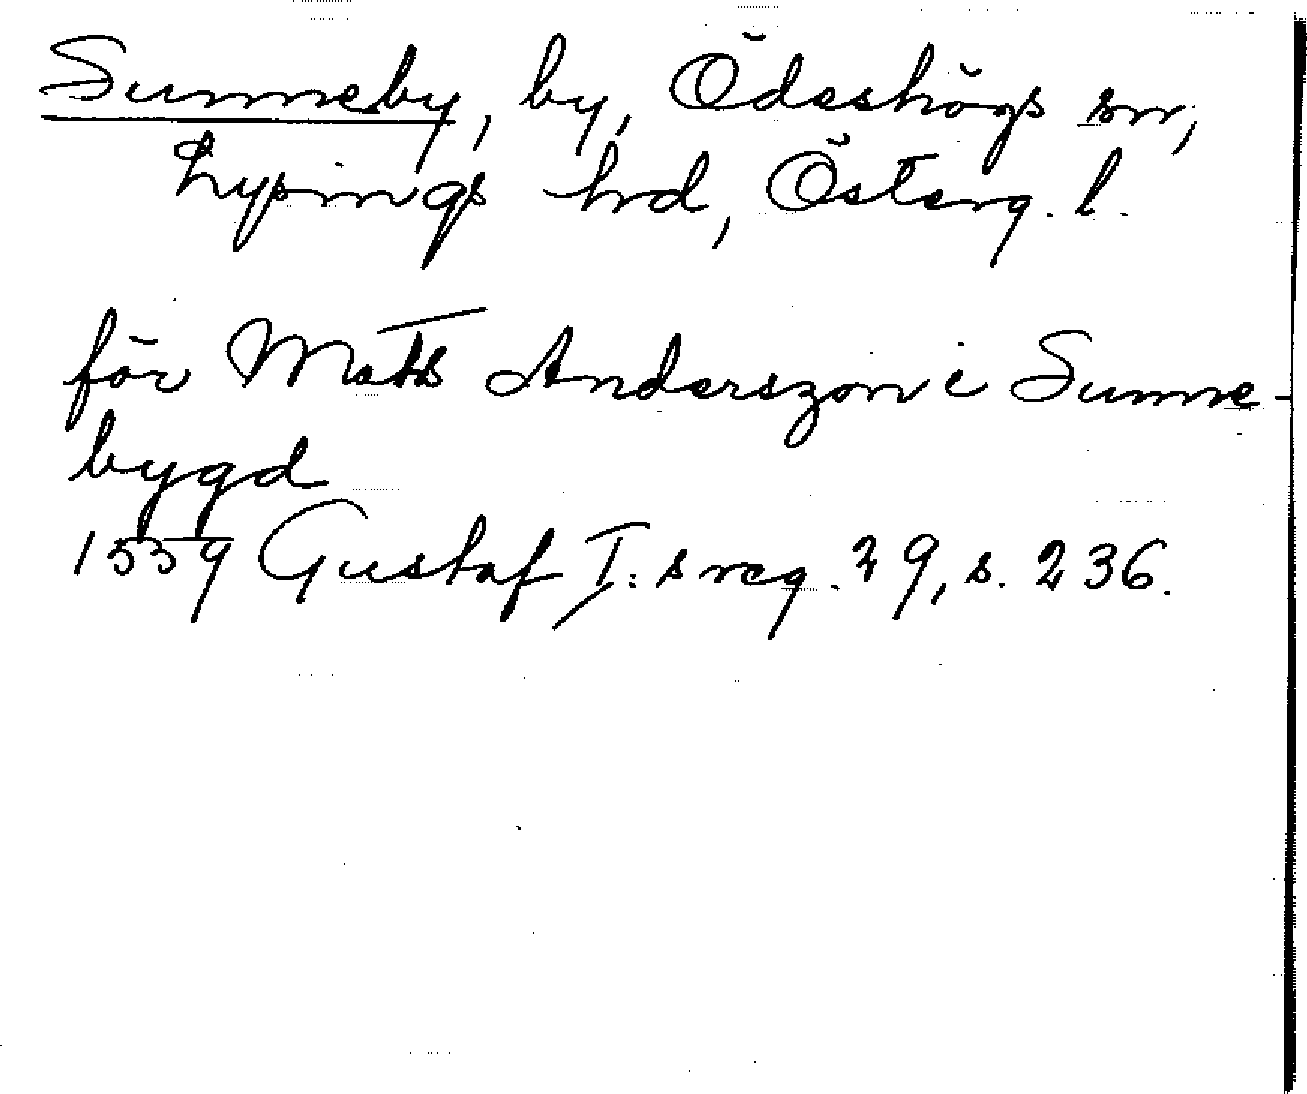 Sunneby, by, Ödeshögs sn,
Lysings hd, Österg. l.
för Matts Anderszon i Sunne-
bygd
1559 Gustaf I:s reg. 29, s. 236.